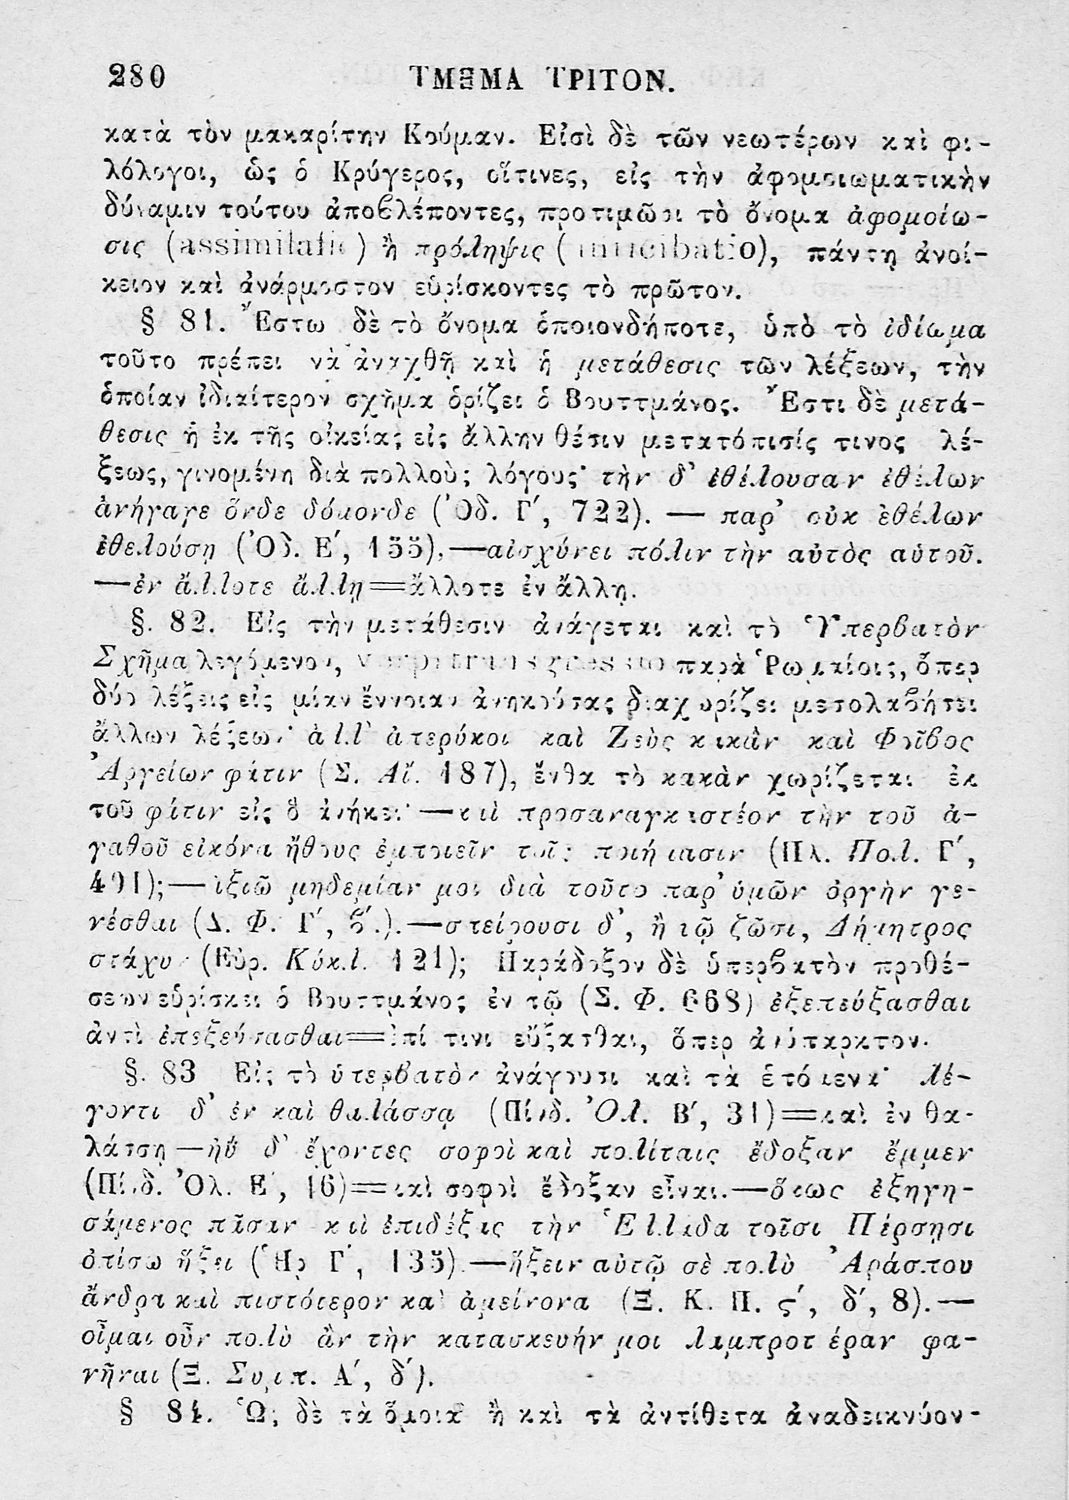 280 ΤΜΗΜΑ ΤΡΙΤΟΝ.
κατὰ τὸν μακαρίτην Κούμαν. Εἰσὶ δὲ τῶν νεωτέρων καὶ φι-
λόλογοι, ὡς ὁ Κρύγερος, οἵτινες, εἰς τὴν ἀφομοιωματικὴν
δύναμιν τούτου ἀποβλέποντες, προτιμῶσι τὸ ὄνομα ἀφομοίω-
σις (assimilatio) ἢ πρόληψις ( ), πάντῃ ἀνοί-
κειον καὶ ἀνάρμοστον εὑρίσκοντες τὸ πρῶτον.
§ 81. Ἔστω δὲ τὸ ὄνομα ὁποιονδήποτε, ὑπὸ τὸ ἰδίωμα
τοῦτο πρέπει νὰ ἀναχθῇ καὶ ἡ μετάθεσις τῶν λέξεων, τὴν
ὁποίαν ἰδιαίτερον σχῆμα ὁρίζει ὁ Βουττμάνος. Ἔστι δὲ μετά-
θεσις ἡ ἐκ τῆς οἰκείας εἰς ἄλλην θέσιν μετατόπισίς τινος λέ-
ξεως, γινομένη διὰ πολλοὺς λόγους· τὴν δ' ἐθέλουσαν ἐθέλων
ἀνήγαγε ὅνδε δόμονδε (Ὀδ. Γ', 722). — παρ' οὐκ ἐθέλων
ἐθελούσῃ (Ὀδ. Ε', 155).—αἰσχύνει πόλιν τὴν αὐτὸς αὑτοῦ.
—ἐν ἄλλοτε ἄλλῃ=ἄλλοτε ἐν ἄλλῃ.
§. 82. Εἰς τὴν μετάθεσιν ἀνάγεται καὶ τὸ Ὑπερβατὸν
Σχῆμα λεγόμενον, παρὰ Ῥωμαίοις, ὅπερ
δύο λέξεις εἰς μίαν ἔννοιαν ἀνηκούσας διαχωρίζει μεσολαβήσει
ἄλλων λέξεων· ἀλλ' ἀπερύκοι καὶ Ζεὺς κακὰν καὶ Φοῖβος
Ἀργείων φάτιν (Σ. Αἴ. 187), ἔνθα τὸ κακὰν χωρίζεται ἐκ
τοῦ φάτιν εἰς ὃ ἀνήκει· —καὶ προσαναγκαστέον τὴν τοῦ ἀ-
γαθοῦ εἰκόνα ἤθους ἐμποιεῖν τοῖς ποιήμασιν (Πλ. Πολ. Γ',
401);—ἀξιῶ μηδεμίαν μοι διὰ τοῦτο παρ' ὑμῶν ὀργὴν γε-
νέσθαι (Δ. Φ. Γ', β'.).—σπείρουσι δ', ἢ τῷ ζῶσι, Δήμητρος
στάχυν (Εὐρ. Κύκλ. 121); Παράδοξον δὲ ὑπερβατὸν προθέ-
σεων εὑρίσκει ὁ Βουττμάνος ἐν τῷ (Σ. Φ. 668) ἐξεπεύξασθαι
ἀντὶ ἐπεξεύξασθαι=ἐπί τινι εὔξασθαι, ὅπερ ἀνύπαρκτον.
§. 83 Εἰς τὸ ὑπερβατὸν ἀνάγουσι καὶ τὰ ἑπόμενα· λέ-
γοντι δ' ἐν καὶ θαλάσσᾳ (Πίνδ. Ὀλ. Β', 31)=καὶ ἐν θα-
λάσσῃ —ηὖ δ' ἔχοντες σοφοὶ καὶ πολίταις ἔδοξαν ἔμμεν
(Πίνδ. Ὀλ. Ε', 16)=καὶ σοφοὶ ἔδοξαν εἶναι.—ὅκως ἐξηγη-
σάμενος πᾶσαν καὶ ἐπιδέξας τὴν Ἑλλάδα τοῖσι Πέρσῃσι
ὀπίσω ἥξει (Ἡρ Γ', 135).—ἥξειν αὐτῷ σὲ πολὺ Ἀράσπου
ἄνδρα καὶ πιστότερον καὶ ἀμείνονα (Ξ. Κ. Π. ς', δ', 8).—
οἶμαι οὖν πολὺ ἂν τὴν κατασκευήν μοι λαμπροτέραν φα-
νῆναι (Ξ. Συμπ. Α', δ').
§ 84. Ὡς δὲ τὰ ὅμοια ἢ καὶ τὰ ἀντίθετα ἀναδεικνύον-